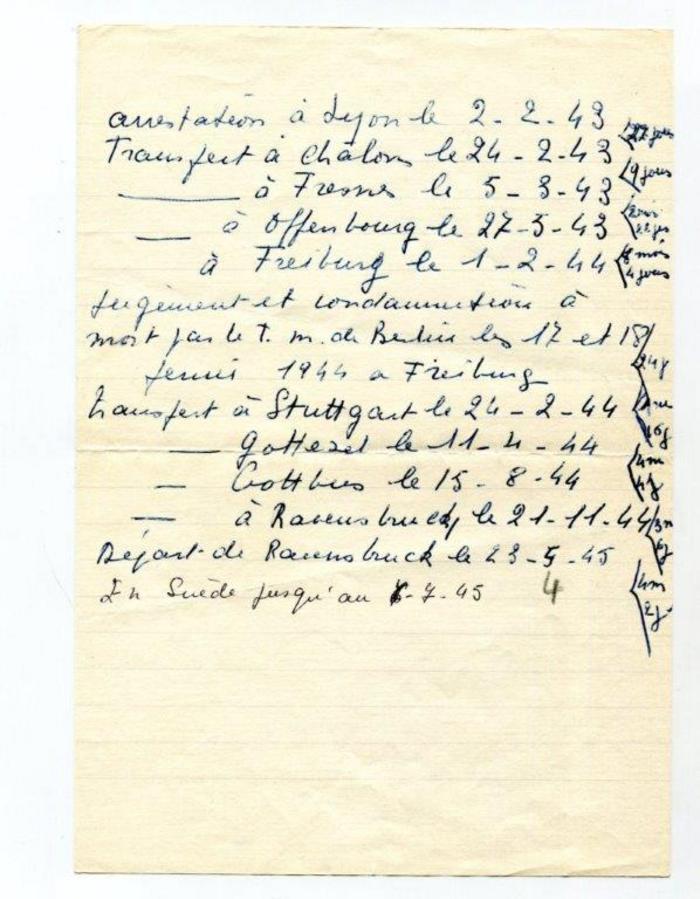 arrestation à Lyon le 2-2-43
22 jours
Transfert à Châlons le 24-2-43
9 jours
— à Fresnes le 5-3-43
— à Offenbourg le 27-5-43
8 mois
4 jours
à Freiburg le 1-2-44
jugement et condamnation à
mort par le T. m. de Berlin les 17 et 18
1944 a Freiburg
24j
transfert à Stuttgart le 24-2-44
— le 11-4-44
4m
4j
— Cottbus le 15-8-44
— à Ravensbruck le 21-11-44
3m
6j
Départ de Ravensbruck le 23-5-45
4
4m
2j
En Suède jusqu'au -7-45